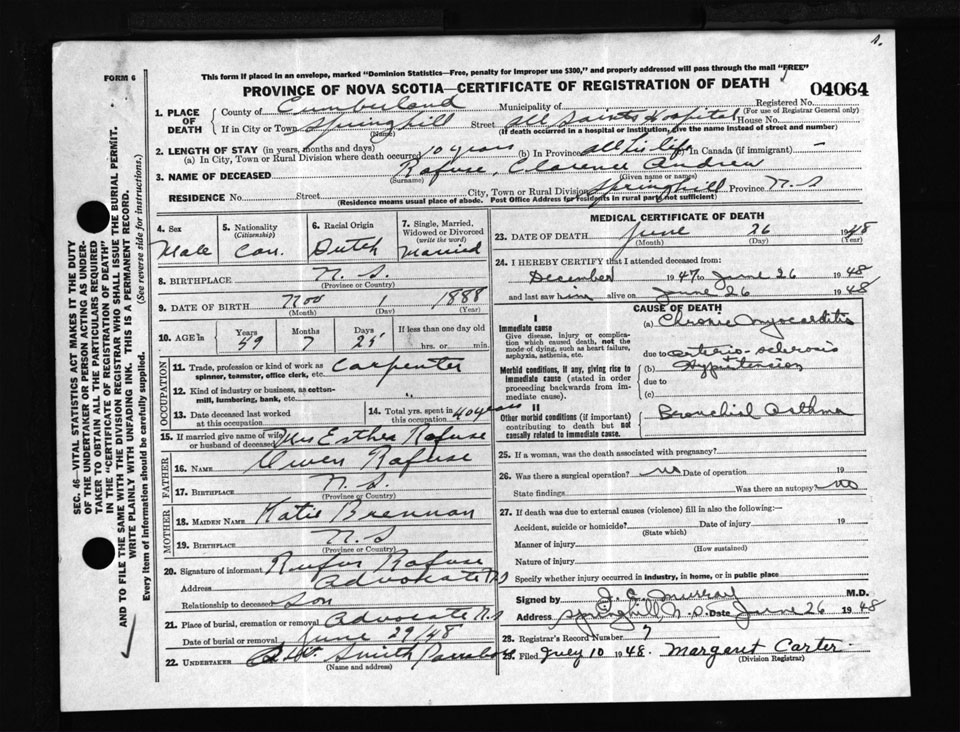 FORM 6
This form if placed in an envelope, marked "Dominion Statistics—Free, penalty for improper use $300," and properly addressed will pass through the mail "FREE"
PROVINCE OF NOVA SCOTIA—CERTIFICATE OF REGISTRATION OF DEATH
04064
1. PLACE OF DEATH
County of Cumberland Municipality of Registered No. (For use of Registrar General only)
If in City or Town Springhill (Name) Street All Saints Hospital House No.
(If death occurred in a hospital or institution, give the name instead of street and number)
2. LENGTH OF STAY (in years, months and days)
(a) In City, Town or Rural Division where death occurred 10 years (b) In Province all his life In Canada (if immigrant) —
3. NAME OF DECEASED Rafuse, Clarence Andrew
(Surname) (Given name or names)
RESIDENCE No. Street City, Town or Rural Division Springhill Province N.S
(Residence means usual place of abode. Post Office Address for residents in rural parts not sufficient)
4. Sex Male
5. Nationality (Citizenship) Can.
6. Racial Origin Dutch
7. Single, Married, Widowed or Divorced (write the word) Married
8. BIRTHPLACE N. S.
(Province or Country)
9. DATE OF BIRTH Nov 1 1888
(Month) (Day) (Year)
10. AGE in Years 59 Months 7 Days 25 If less than one day old hrs. or min.
OCCUPATION
11. Trade, profession or kind of work as spinner, teamster, office clerk, etc. Carpenter
12. Kind of industry or business, as cotton-mill, lumbering, bank, etc.
13. Date deceased last worked at this occupation
14. Total yrs. spent in this occupation 40 years
15. If married give name of wife or husband of deceased Mrs Esther Rafuse
FATHER
16. NAME Owen Rafuse
17. BIRTHPLACE N. S.
(Province or Country)
MOTHER
18. MAIDEN NAME Katie Brennan
19. BIRTHPLACE N. S
(Province or Country)
20. Signature of informant Rufus Rafuse
Address Advocate N S
Relationship to deceased Son
21. Place of burial, cremation or removal Advocate N. S
Date of burial or removal June 29/48
22. UNDERTAKER Smith Parrsboro
(Name and address)
MEDICAL CERTIFICATE OF DEATH
23. DATE OF DEATH June 26 1948
(Month) (Day) (Year)
24. I HEREBY CERTIFY that I attended deceased from:
December 1947 to June 26 1948
and last saw him alive on June 26 1948
CAUSE OF DEATH
I
Immediate cause
Give disease, injury or complication which caused death, not the mode of dying, such as heart failure, asphyxia, asthenia, etc.
(a) Chronic Myocarditis
due to arterio-sclerosis
Morbid conditions, if any, giving rise to immediate cause (stated in order proceeding backwards from immediate cause).
(b) + Hypertension
due to
(c)
II
Other morbid conditions (if important) contributing to death but not causally related to immediate cause.
Bronchial Asthma
25. If a woman, was the death associated with pregnancy?
26. Was there a surgical operation? no Date of operation 19
State findings Was there an autopsy? no
27. If death was due to external causes (violence) fill in also the following:—
Accident, suicide or homicide? Date of injury 19
(State which)
Manner of injury
(How sustained)
Nature of injury
Specify whether injury occurred in industry, in home, or in public place
Signed by J. E. Murray M.D.
Address Springhill, N. S. Date June 26 1948
28. Registrar's Record Number 7
29. Filed July 10 1948. Margaret Carter
(Division Registrar)
SEC. 46—VITAL STATISTICS ACT MAKES IT THE DUTY
OF THE UNDERTAKER OR PERSON ACTING AS UNDER-
TAKER TO OBTAIN ALL THE PARTICULARS REQUIRED
IN THE "CERTIFICATE OF REGISTRATION OF DEATH"
AND TO FILE THE SAME WITH THE DIVISION REGISTRAR WHO SHALL ISSUE THE BURIAL PERMIT.
WRITE PLAINLY WITH UNFADING INK. THIS IS A PERMANENT RECORD.
Every item of information should be carefully supplied. (See reverse side for instructions.)